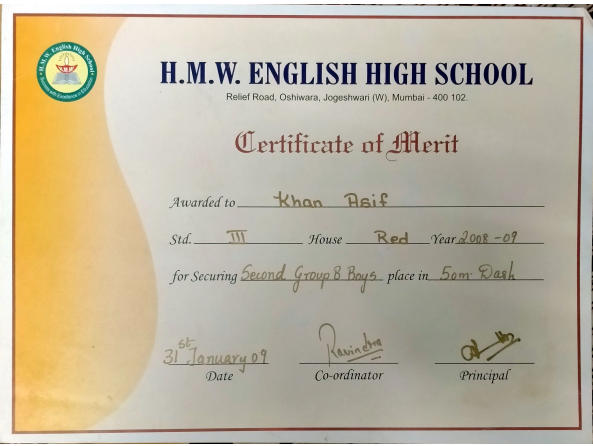 H.M.W. English High School
H.M.W. ENGLISH HIGH SCHOOL
Relief Road, Oshiwara, Jogeshwari (W), Mumbai - 400 102.
Certificate of Merit
Awarded to Khan Asif
Std. III House Red Year 2008-09
for Securing Second Group B Boys place in 50m Dash
31st January 09 Ravindra
Date Co-ordinator Principal